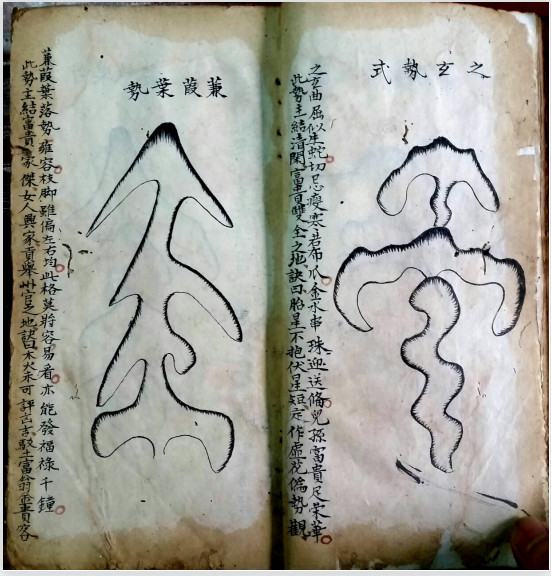 之玄勢式
之玄曲屈似生蛇切忌瘦寒若布瓜金水串珠迎送條兒孫富貴足荣華
此勢主結清閑富貴雙全之地訣曰胎星不抱伏星短定作虛花倫勢觀
蒹葭葉勢
蒹葭葉落勢雍容枝脚雖偏左右均此格莫將容易看亦能發福祿千鐘
此勢主結富貴豪傑女人興家貢舉州官之地訣曰木火未可評言吉土富翁重貴客